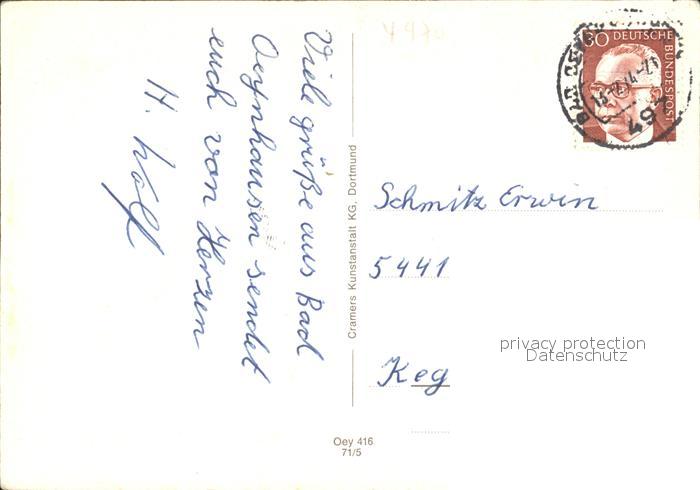 Viele grüße aus Bad
Oeynhausen sendet
euch von Herzen
H. Wolf
Cramers Kunstanstalt KG, Dortmund
30 DEUTSCHE
BUNDESPOST
Schmitz Erwin
5441
Keg
privacy protection
Datenschutz
Oey 416
71/5